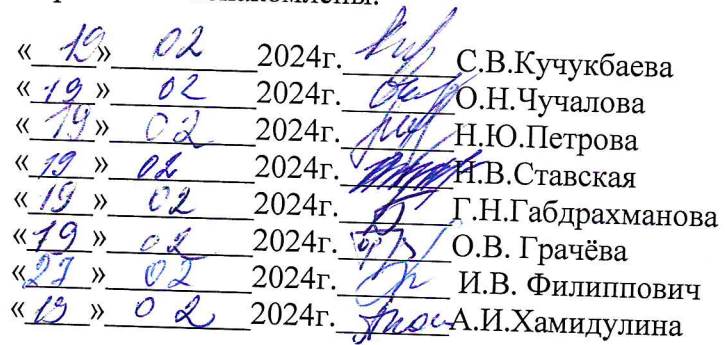 ознакомлены.
«19» 02 2024г. С.В.Кучукбаева
«19» 02 2024г. О.Н.Чучалова
«19» 02 2024г. Н.Ю.Петрова
«19» 02 2024г. Н.В.Ставская
«19» 02 2024г. Г.Н.Габдрахманова
«19» 02 2024г. О.В. Грачёва
«27» 02 2024г. И.В. Филиппович
«19» 02 2024г. А.И.Хамидулина